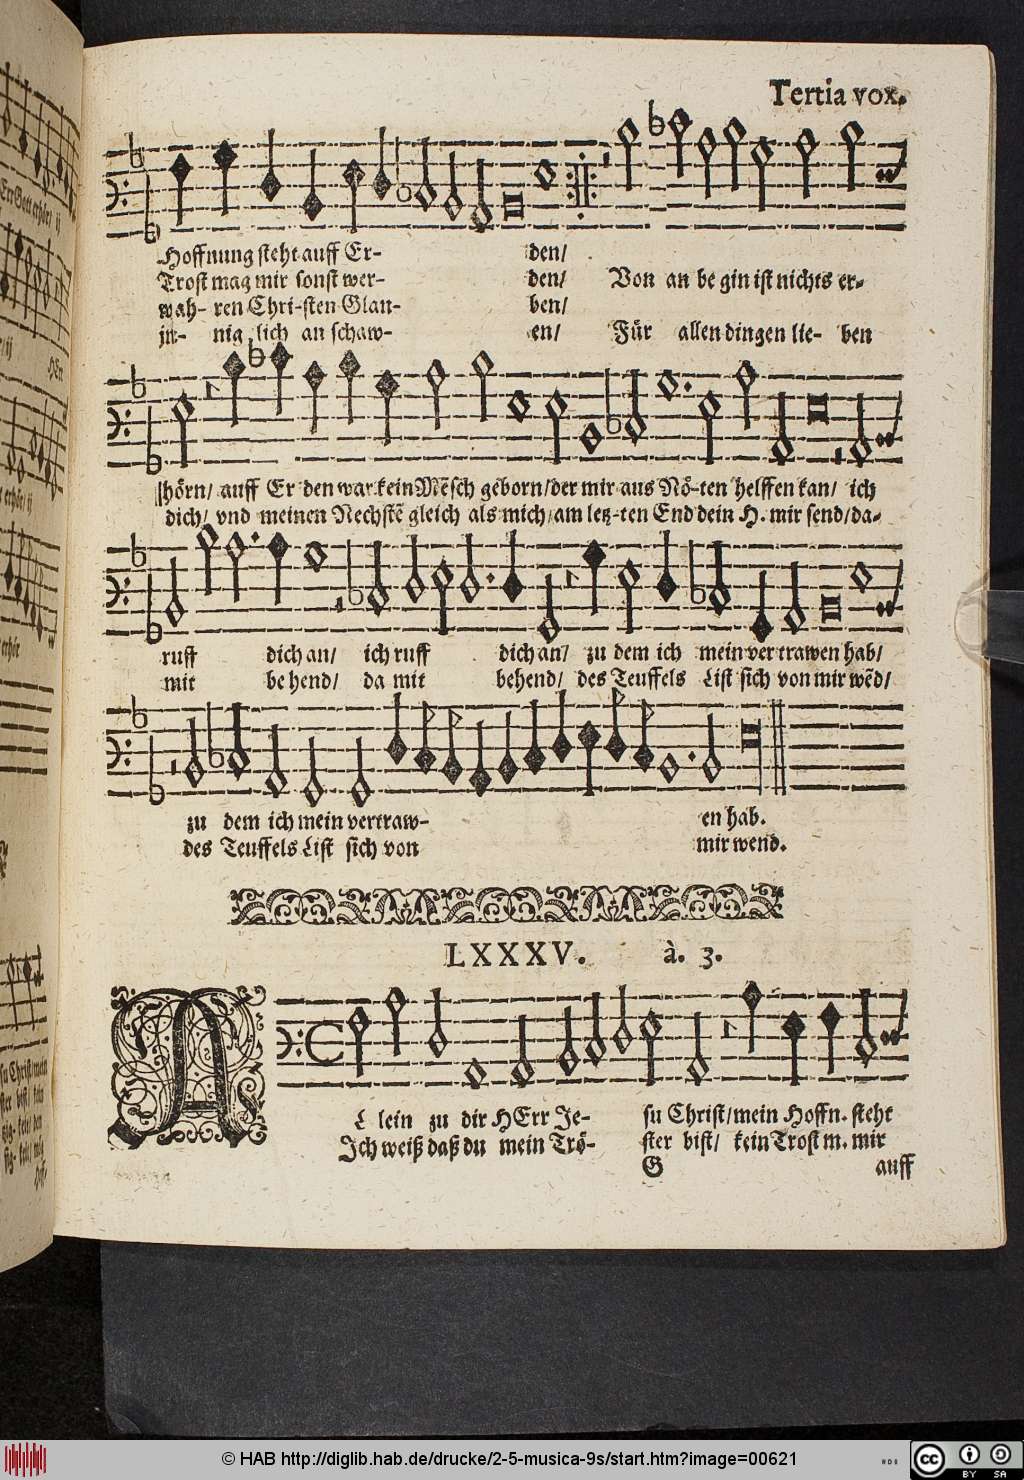 Tertia vox.
Hoffnung steht auff Er- den/
Trost mag mir sonst wer- den/ Von an be gin ist nichts er-
wah- ren Chri-sten Glau- ben/
in- nig lich an schaw- en/ Für allen dingen lie- ben
hörn/ auff Er den war kein Mẽsch geborn/der mir aus Nö-ten helffen kan/ ich
dich/ vnd meinen Nechstẽ gleich als mich/am letz-ten End dein H. mir send/da-
ruff dich an/ ich ruff dich an/ zu dem ich mein ver trawen hab/
mit be hend/ da mit behend/ des Teuffels List sich von mir wẽd/
zu dem ich mein vertraw- en hab.
des Teuffels List sich von mir wend.
LXXXV. à. 3.
A L lein zu dir HErr Je- su Christ/mein Hoffn. steht
Ich weiß daß du mein Trö- ster bist/ kein Trost m. mir
G auff
© HAB http://diglib.hab.de/drucke/2-5-musica-9s/start.htm?image=00621
cc BY SA